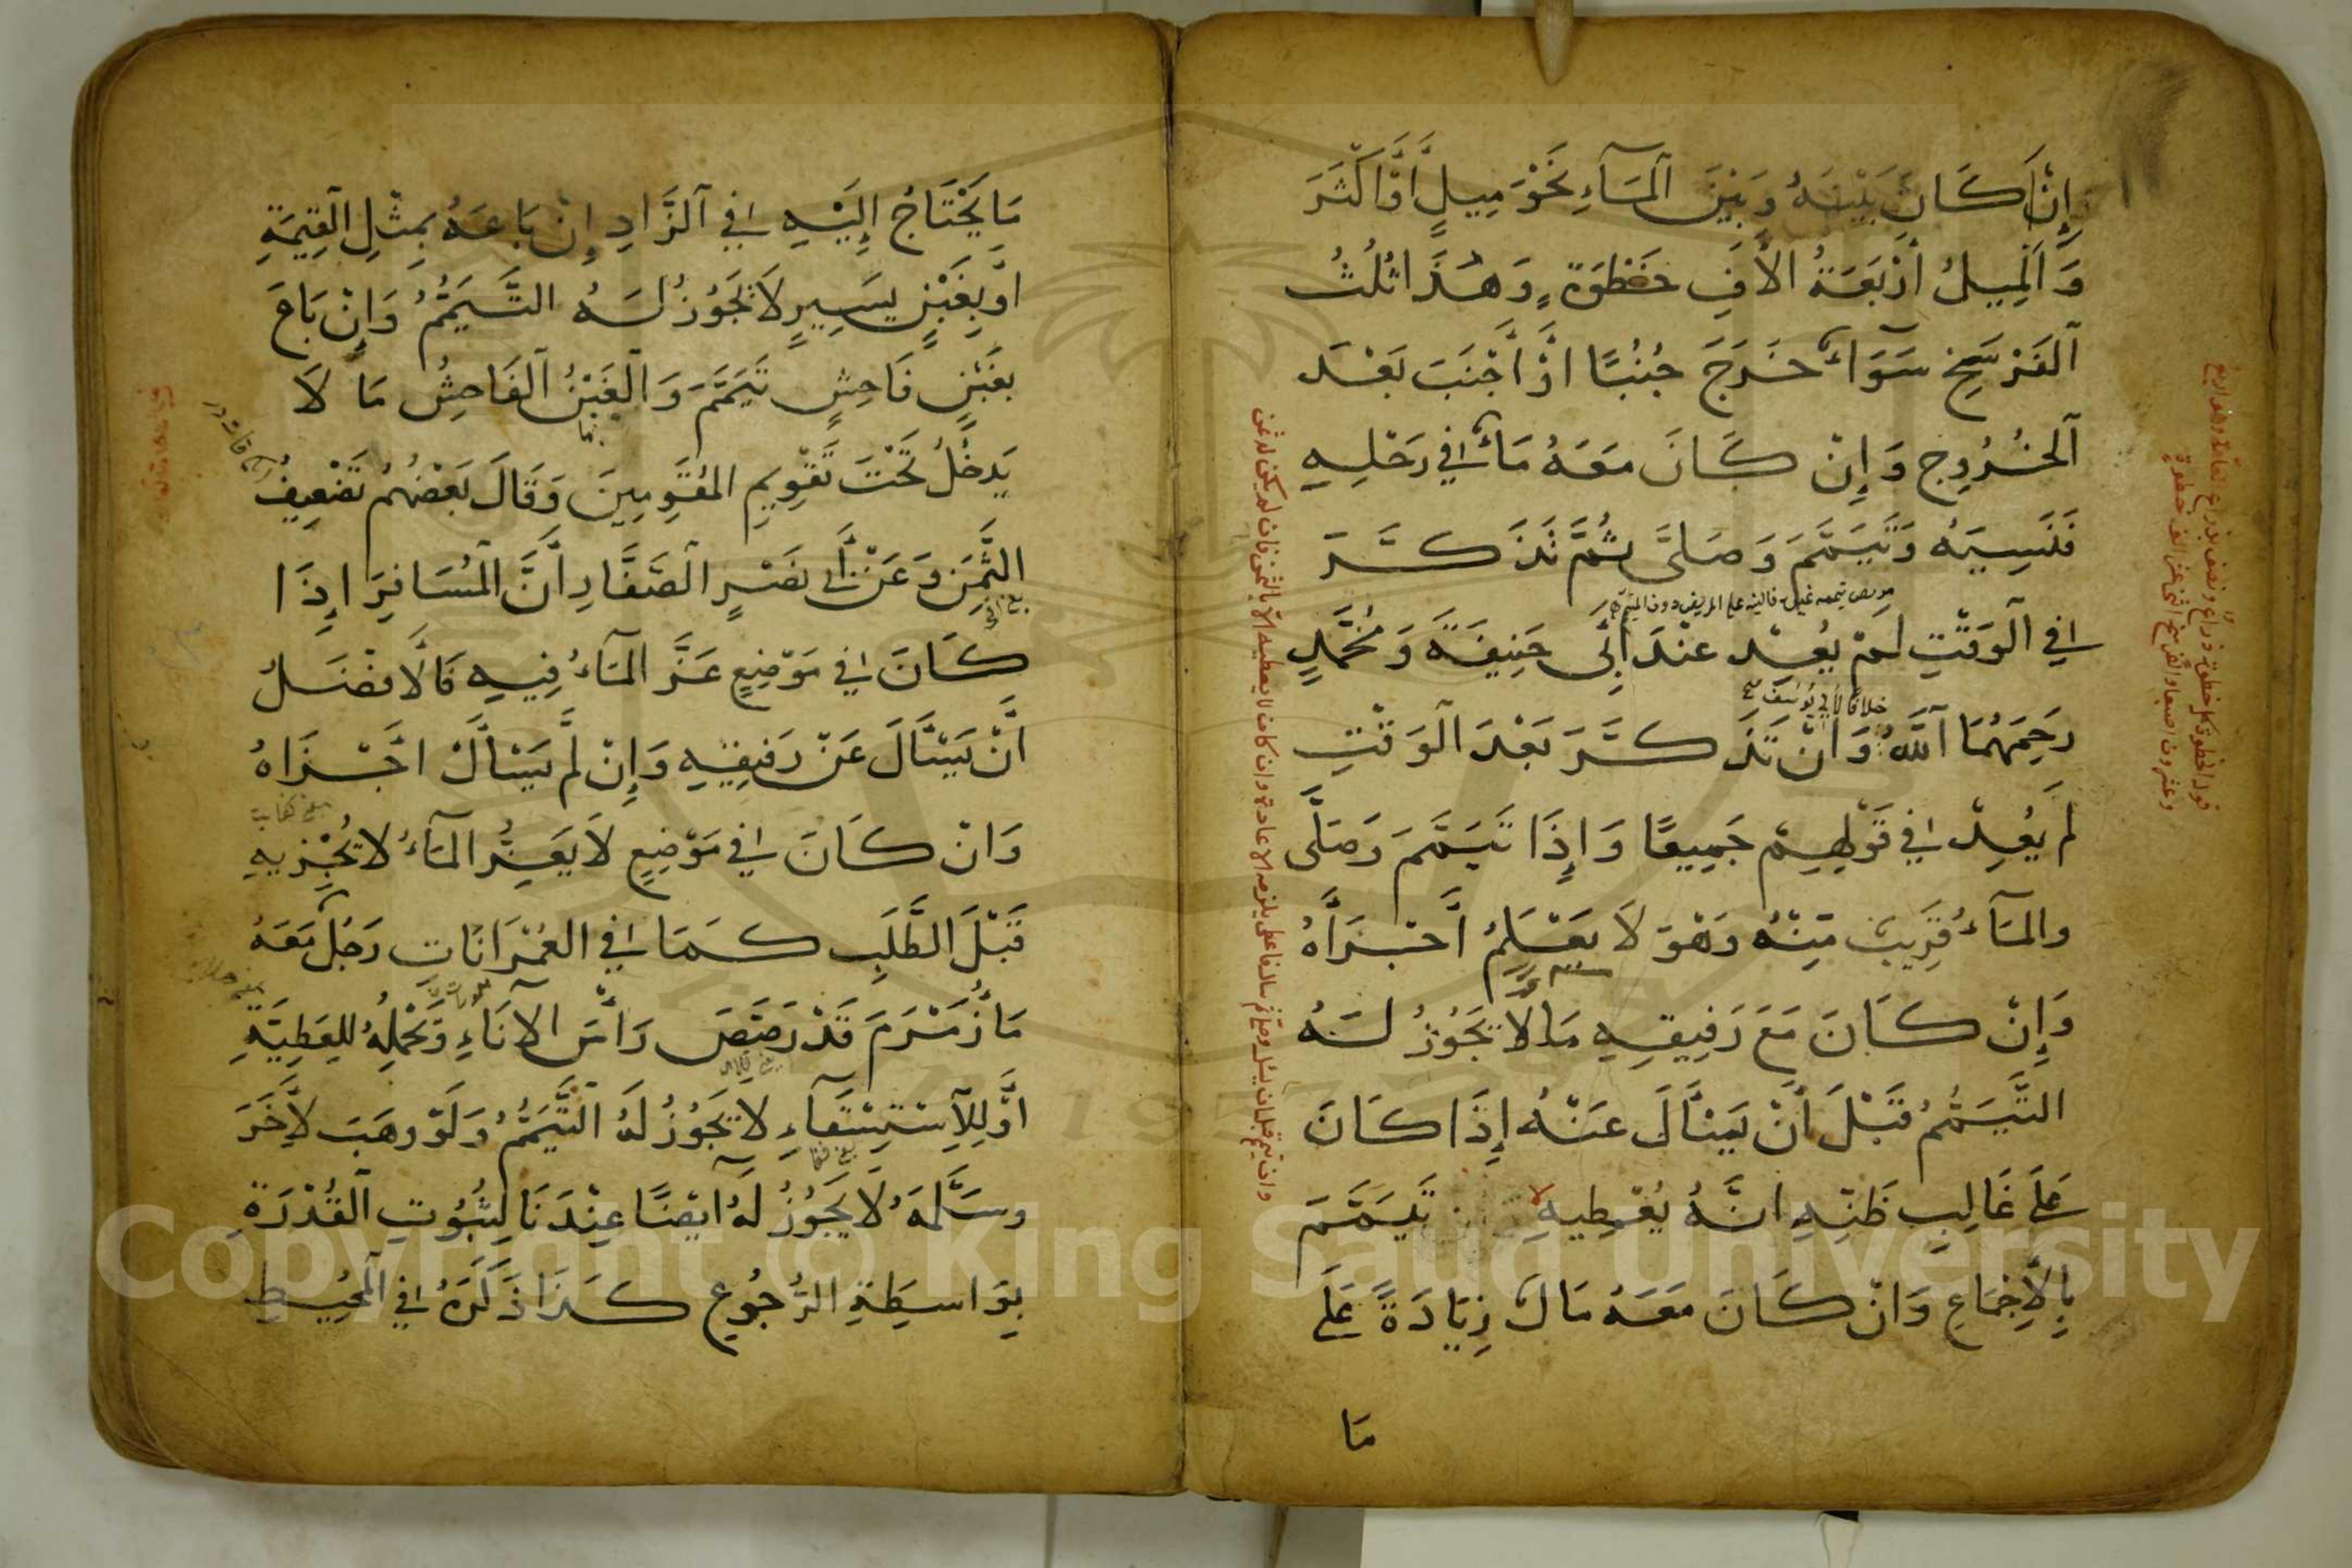 إِنْ كَانَ بَيْنَهُ وَبَيْنَ الْمَآءِ نَحْوَ مِيلٍ أَوْ أَكْثَرَ
وَالْمِيلُ أَرْبَعَةُ الْأَفِ خَطْوَةٍ وَهَذَا ثُلُثُ
الْفَرْسَخِ سَوَآءٌ خَرَجَ جُنُبًا اَوْ أَجْنَبَ بَعْدَ
الْخُرُوجِ وَإِنْ كَانَ مَعَهُ مَآءٌ فِي رَحْلِهِ
فَنَسِيَهُ وَتَيَمَّمَ وَصَلَّى ثُمَّ تَذَكَّرَ
فِي الْوَقْتِ لَمْ يُعِدْ عِنْدَ أَبِي حَنِيفَةَ وَمُحَمَّدٍ
خلافا لابي يوسف
رَحِمَهُمَا اللَّهُ وَانْ تَذَكَّرَ بَعْدَ الْوَقْتِ
لَمْ يُعِدْ فِي قَوْلِهِمْ جَمِيعًا وَإِذَا تَيَمَّمَ وَصَلَّى
وَالْمَآءُ قَرِيبٌ مِنْهُ وَهْوَ لَا يَعْلَمُ أَجْزَأَهُ
وَإِنْ كَانَ مَعَ رَفِيقِهِ مَا لَا يَجُوزُ لَهُ
التَّيَمُّمُ قَبْلَ أَنْ يَسْأَلَ عَنْهُ إِذَا كَانَ
عَلَى غَالِبِ ظَنِّهِ انَّهُ يُعْطِيهِ تَيَمَّمَ
بِالْإِجْمَاعِ وَانْ كَانَ مَعَهُ مَالٌ زِيَادَةً عَلَى
مَا
مَا يَحْتَاجُ إِلَيْهِ فِي الزَّادِ إِنْ بَاعَهُ بِمِثْلِ الْقِيمَةِ
اَوْ بِغَبْنٍ يَسِيرٍ لَا يَجُوزُ لَهُ التَّيَمُّمُ وَإِنْ بَاعَ
بِغَبْنٍ فَاحِشٍ تَيَمَّمَ وَالْغَبْنُ الْفَاحِشُ مَا لَا
يَدخُلُ تَحْتَ تَقْوِيمِ الْمُقَوِّمِينَ وَقَالَ بَعْضُهُمْ تَضْعِيفُ
الثَّمَنِ وَعَنْ أَبِي نَصْرٍ الصَّفَّارِ أَنَّ الْمُسَافِرَ إِذَا
كَانَ فِي مَوْضِعٍ عَزَّ الْمَآءُ فِيهِ فَالْأَفْضَلُ
أَنْ يَسْأَلَ عَنْ رَفِيقِهِ وَإِنْ لَمْ يَسْأَلْ اجْزَاهُ
وَانْ كَانَ فِي مَوْضِعٍ لَا يَعِزُّ الْمَآءُ لَا يُجْزِيهِ
قَبْلَ الطَّلَبِ كَمَا فِي الْعُمْرَانَاتِ رَجُلٌ مَعَهُ
مَآءُ زَمْزَمَ قَدْ رَصَّصَ رَأْسَ الْاِنَاءِ وَيَحْمِلُهُ لِلعَطِيَّةِ
اَوْ لِلْاِسْتِسْقَآءِ لَا يَجُوزُ لَهُ التَّيَمُّمُ وَلَوْ وَهَبَ لِآخَرَ
وَسَلَّمَهُ لَا يَجُوزُ لَهُ اَيْضًا عِنْدَنَا لِثُبُوتِ الْقُدْرَةِ
بِوَاسِطَةِ الرُّجُوعِ كَذَا ذَكَرَهُ فِي الْمُحِيطِ
Copyright © King Saud University